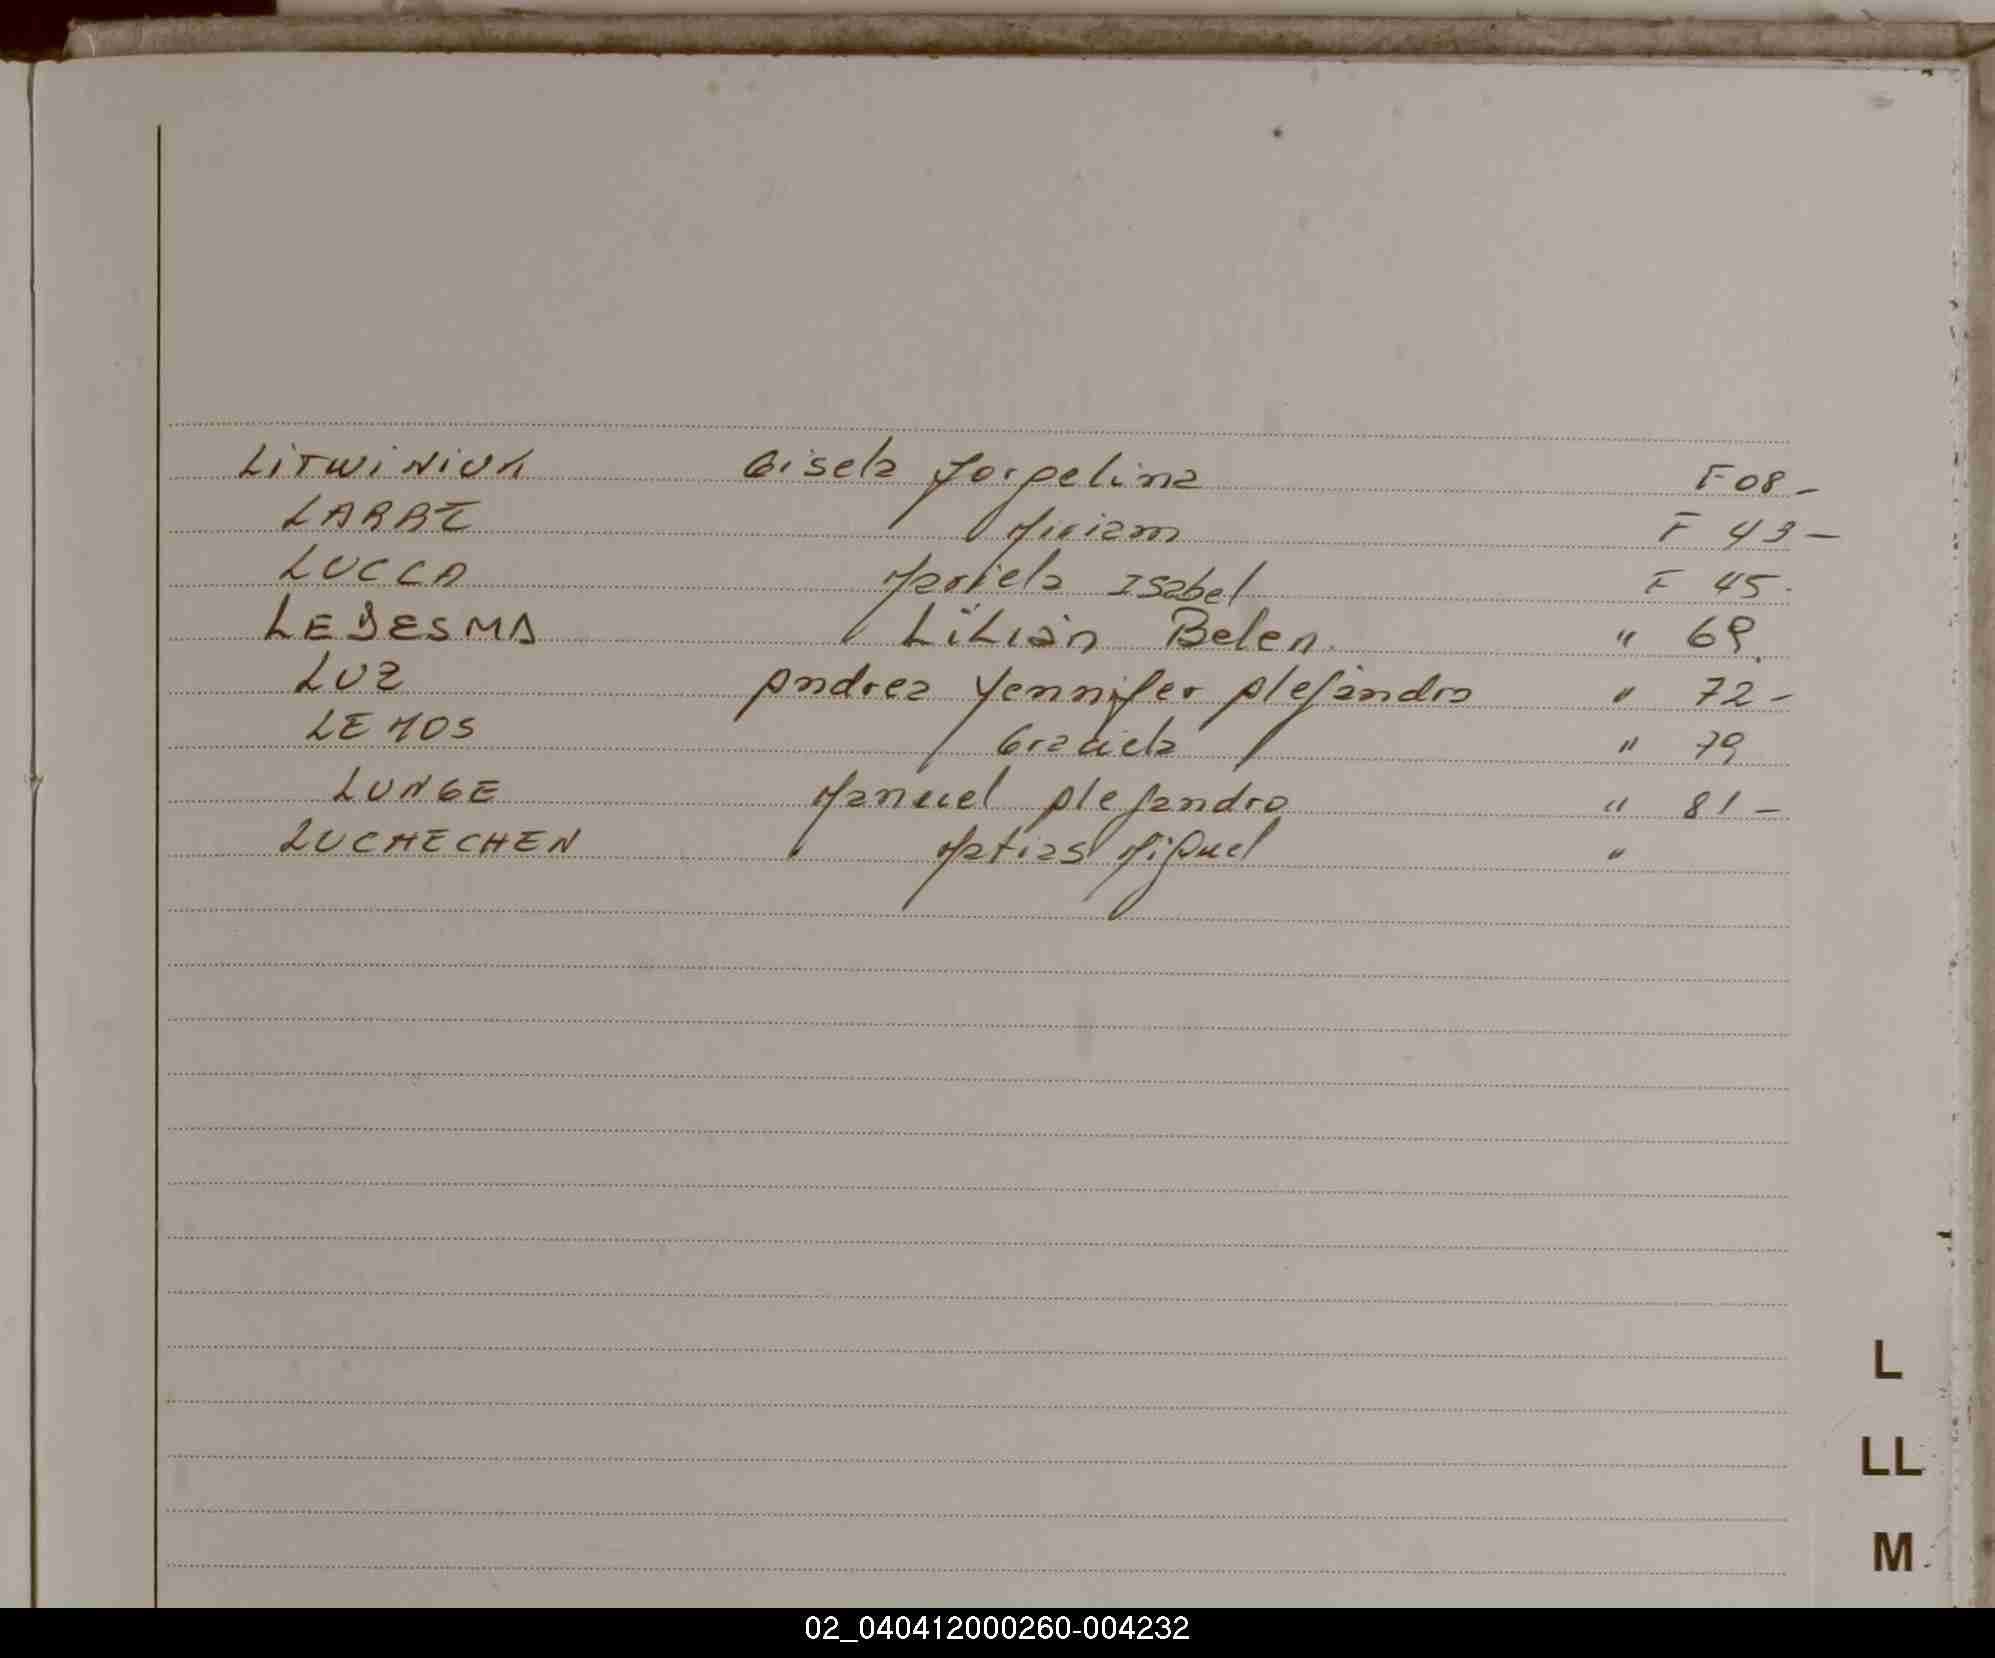 LITWINIUK Gisela Jorgelina F 08 -
LARRE Miriam F 43 -
LUCCA Mariela Isabel F 45 -
LEDESMA Lilian Belen " 69
LUZ Andrea Yennifer Alejandra " 72 -
LEMOS Graciela " 79
LUNGE Manuel Alejandro " 81 -
LUCHECHEN Matias Miguel "
L
LL
M
02_040412000260-004232